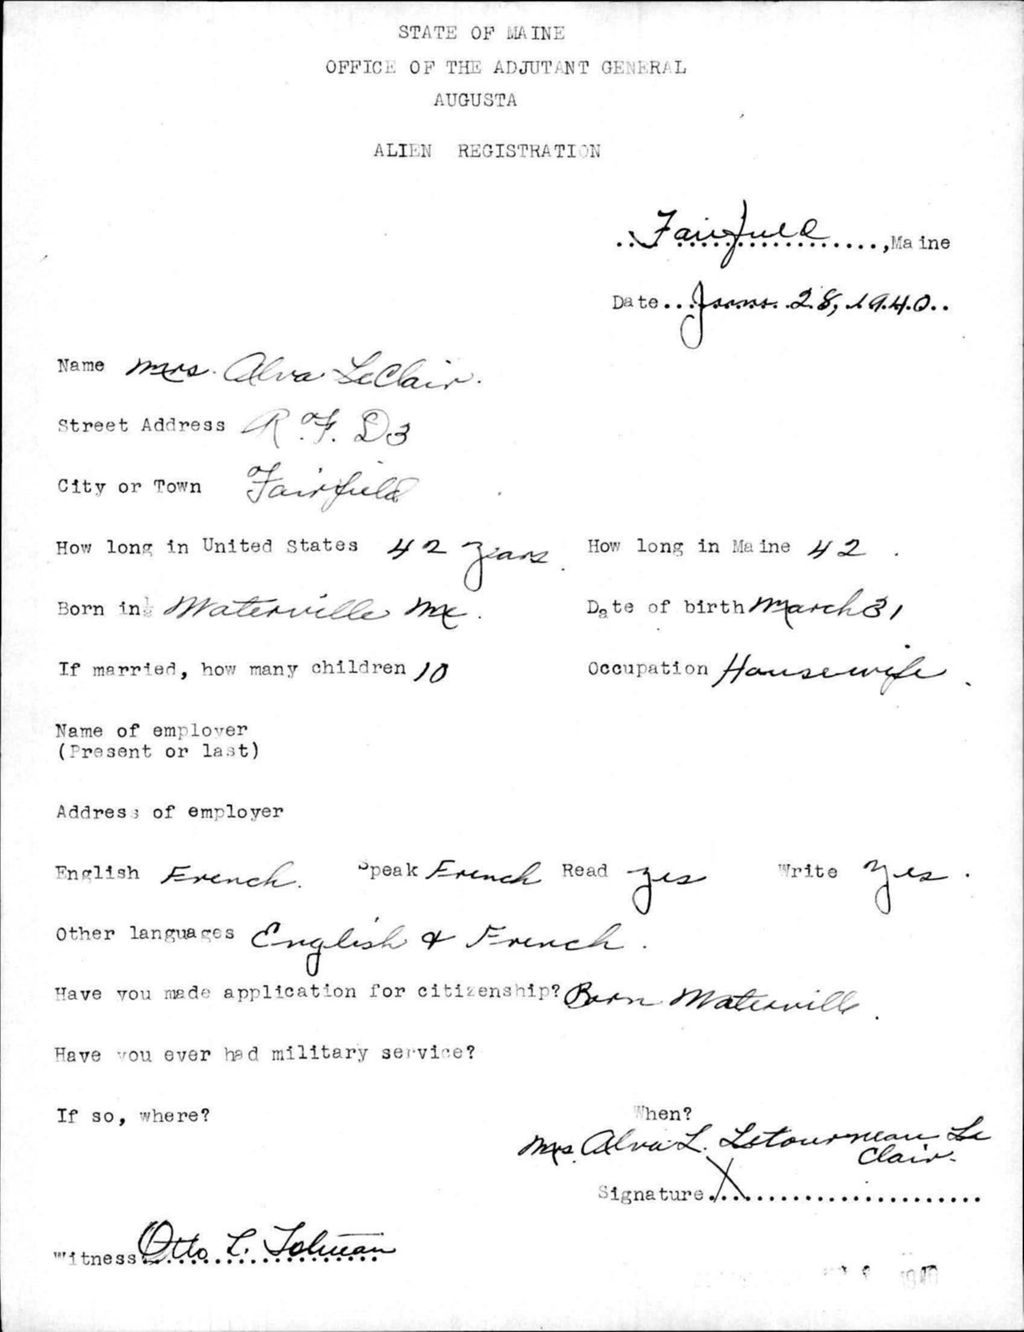 STATE OF MAINE
OFFICE OF THE ADJUTANT GENERAL
AUGUSTA
ALIEN REGISTRATION
Fairfield, Maine
Date June 28, 1940
Name Mrs. Alva LeClair.
Street Address R.F.D 3
City or Town Fairfield
How long in United States 42 years. How long in Maine 42.
Born in Waterville Me. Date of birth March 31
If married, how many children 10 Occupation Housewife.
Name of employer
(Present or last)
Address of employer
English French. Speak French Read yes Write Yes.
Other languages English & French.
Have you made application for citizenship? Born Waterville.
Have you ever had military service?
If so, where? When?
Mrs. Alva L. Letourneau Le
Clair.
Signature X
Witness Otto L. Tolman
1940